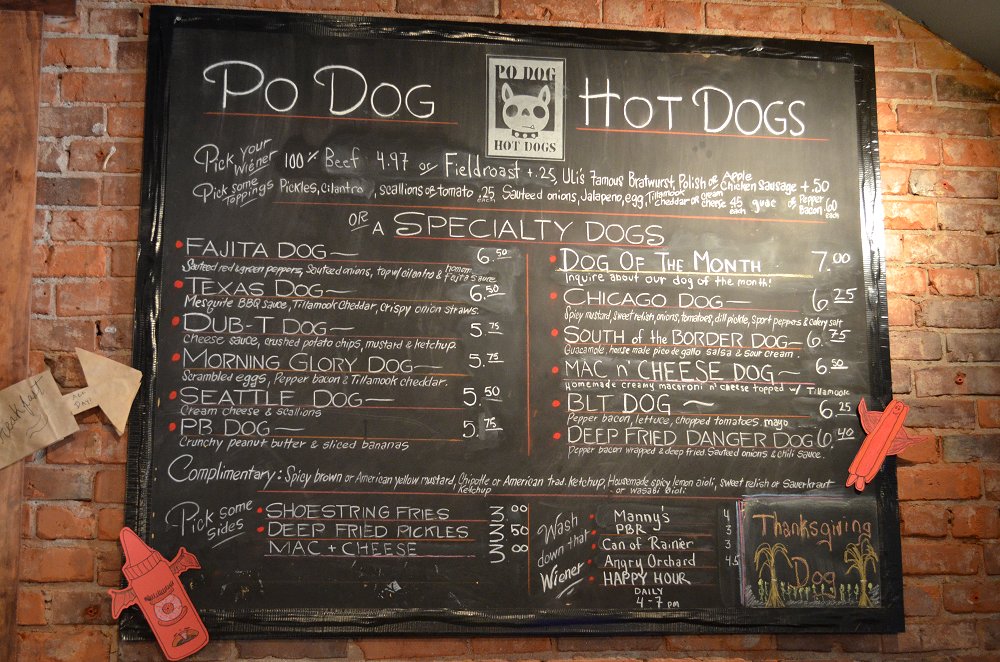 PO DOG
PO DOG
HOT DOGS
HOT DOGS
Pick your Wiener 100% Beef 4.97 or Fieldroast +.25, Uli's Famous Bratwurst, Polish or Apple Chicken Sausage +.50
Pick some Toppings Pickles, Cilantro, scallions or tomato .25 each, Sauteed onions, Jalapeno, egg, Tillamook Cheddar or cream cheese 45 each guac or Pepper Bacon 60 each
OR A SPECIALTY DOGS
FAJITA DOG— 6.50
Sauteed red & green peppers, Sauteed onions, top w/ cilantro & Fajita Sauce
TEXAS DOG— 6.50
Mesquite BBQ sauce, Tillamook Cheddar, crispy onion straws.
DUB-T DOG— 5.75
Cheese sauce, crushed potato chips, mustard & ketchup.
MORNING GLORY DOG— 5.75
Scrambled eggs, Pepper bacon & Tillamook cheddar.
SEATTLE DOG— 5.50
Cream cheese & scallions
PB DOG— 5.75
Crunchy peanut butter & sliced bananas
DOG OF THE MONTH 7.00
Inquire about our dog of the month!
CHICAGO DOG— 6.25
Spicy mustard, sweet relish, onions, tomatoes, dill pickle, sport peppers & celery salt
SOUTH of the BORDER DOG— 6.75
Guacamole, house made pico de gallo salsa & sour cream.
MAC n' CHEESE DOG— 6.50
Homemade creamy macaroni n' cheese topped w/ Tillamook
BLT DOG ~ 6.25
Pepper bacon, lettuce, chopped tomatoes. mayo
DEEP FRIED DANGER DOG 6.40
Pepper bacon wrapped & deep fried. Sauteed onions & chili sauce.
Complimentary: Spicy brown or American yellow mustard, Chipotle Ketchup or American trad. Ketchup, Housemade spicy lemon aioli, sweet relish or Sauerkraut
or wasabi aioli
Pick some Sides
SHOESTRING FRIES 3.00
DEEP FRIED PICKLES 2.50
MAC + CHEESE 3.00
Wash down that Wiener
Manny's 4
PBR 3
Can of Rainier 3
Angry Orchard 4.5
HAPPY HOUR
DAILY
4-7 pm
Thanksgiving
Dog
Breakfast
ALL DAY!